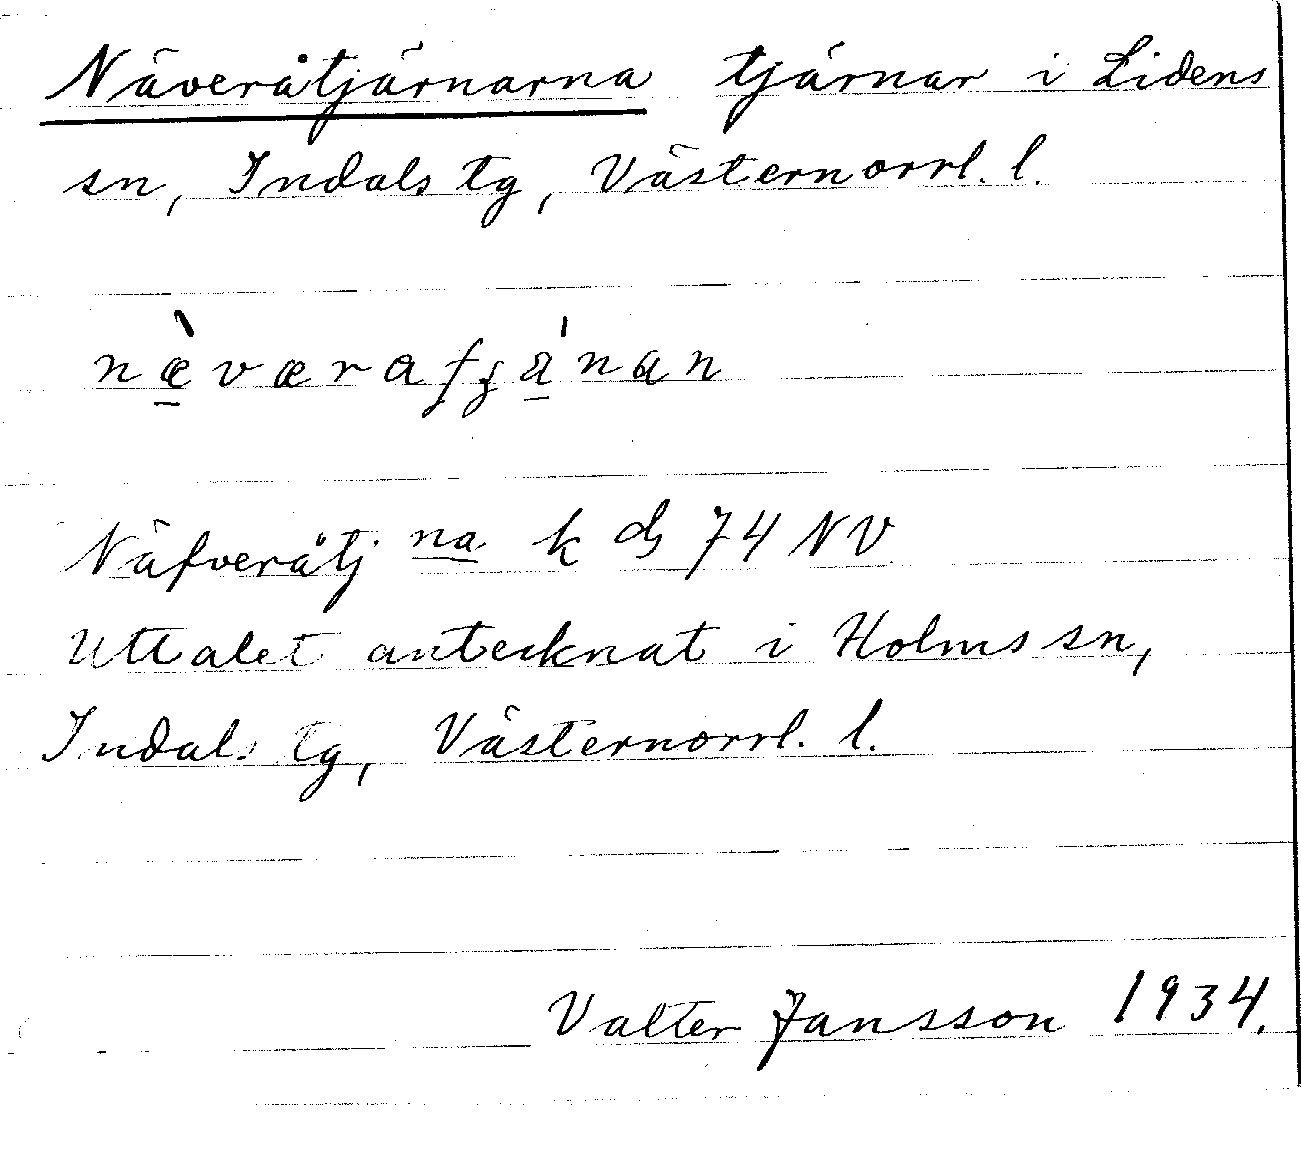 Näveråtjärnarna tjärnar i Lidens
sn, Indals tg, Västernorrl. l.
næ̀værafjänan
Näfveråtj na k ds 74 NV
Uttalet antecknat i Holms sn,
Indals tg, Västernorrl. l.
Valter Jansson 1934.